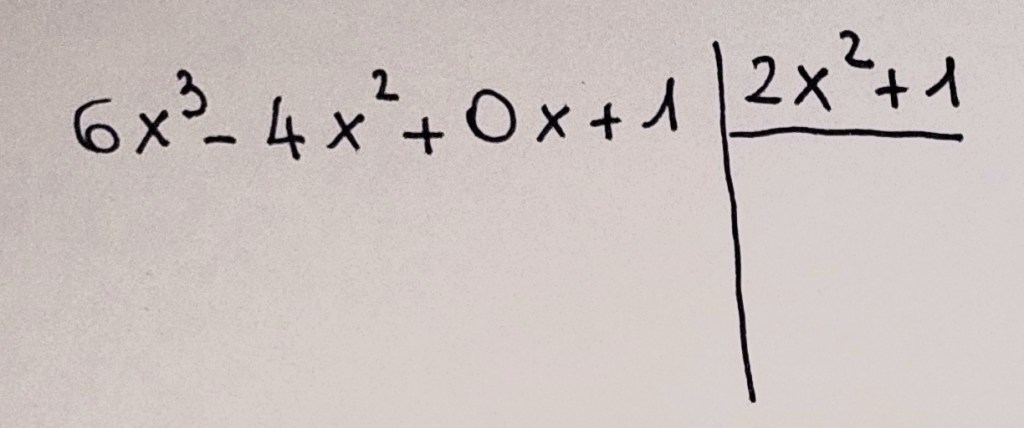 6x³ - 4x² + 0x + 1 | 2x² + 1